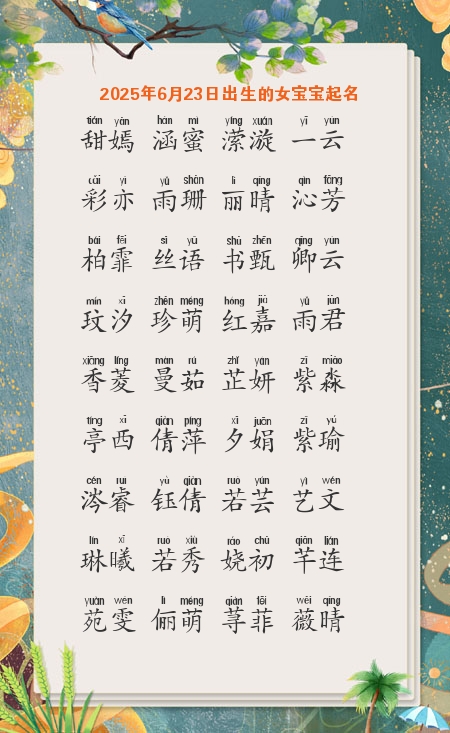 2025年6月23日出生的女宝宝起名
tián yān hán mì yíng xuán yī yún
甜嫣 涵蜜 潆漩 一云
cǎi yì yǔ shān lì qíng qìn fāng
彩亦 雨珊 丽晴 沁芳
bǎi fēi sī yǔ shū zhēn qīng yún
柏霏 丝语 书甄 卿云
mín xī zhēn méng hóng jiā yǔ jūn
玟汐 珍萌 红嘉 雨君
xiāng líng màn rú zhǐ yán zǐ miǎo
香菱 曼茹 芷妍 紫淼
tíng xī qiàn píng xī juān zǐ yú
亭西 倩萍 夕娟 紫瑜
cén ruì yù qiàn ruò yún yì wén
涔睿 钰倩 若芸 艺文
lín xī ruò xiù ráo chū qiān lián
琳曦 若秀 娆初 芊连
yuàn wén lì méng qián fēi wēi qíng
苑雯 俪萌 荨菲 薇晴